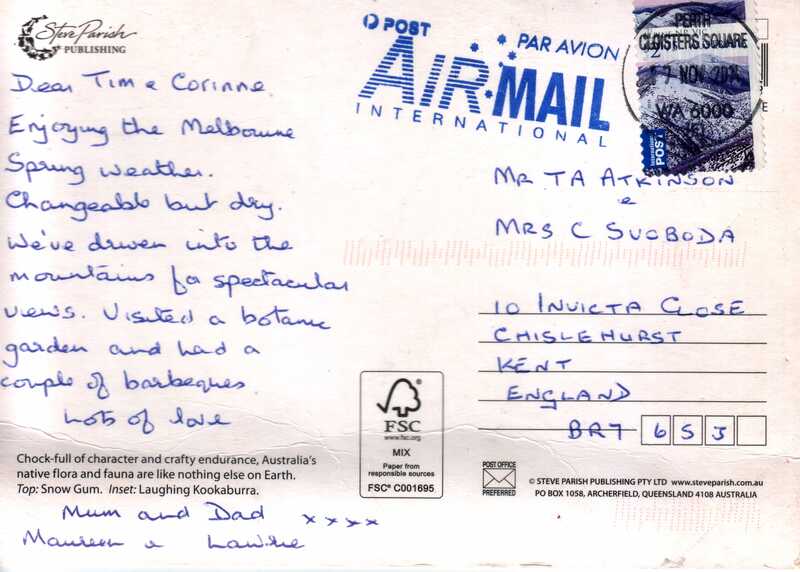 Steve Parish
PUBLISHING
Dear Tim & Corinne
Enjoying the Melbourne
Spring weather.
Changeable but dry.
We've driven into the
mountains for spectacular
views. Visited a botanic
garden and had a
couple of barbeques.
Lots of love
Chock-full of character and crafty endurance, Australia's
native flora and fauna are like nothing else on Earth.
Top: Snow Gum. Inset: Laughing Kookaburra.
Mum and Dad xxxx
Maureen &
POST
PAR AVION
AIR MAIL
INTERNATIONAL
PERTH
CLOISTERS SQUARE
7 NOV
WA 6000
International
POST
MR TA ATKINSON
&
MRS C SVOBODA
10 INVICTA CLOSE
CHISLEHURST
KENT
ENGLAND
BR7 6SJ
FSC
www.fsc.org
MIX
Paper from
responsible sources
FSC® C001695
POST OFFICE
PREFERRED
© STEVE PARISH PUBLISHING PTY LTD www.steveparish.com.au
PO BOX 1058, ARCHERFIELD, QUEENSLAND 4108 AUSTRALIA